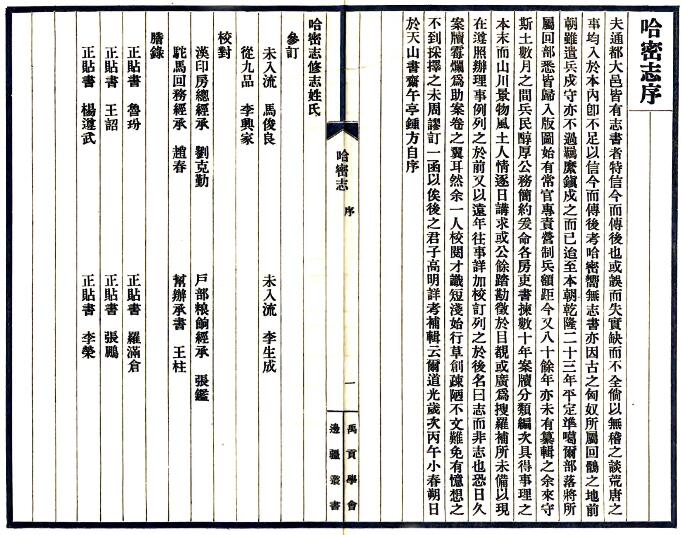 哈密志序
夫通都大邑皆有志書者特信今而傳後也或誤而失實缺而不全倘以無稽之談荒唐之
事均入於本內卽不足以信今而傳後考哈密嚮無志書亦因古之匈奴所屬回鶻之地前
朝雖遣兵戍守亦不過羈縻鎭戍之而已迨至本朝乾隆二十三年平定準噶爾部落將所
屬回部悉皆歸入版圖始有常官專責營制兵額距今又八十餘年亦未有纂輯之余來守
斯土數月之間兵民醇厚公務簡約爰命各房吏書揀數十年案牘分類編次具得事理之
本末而山川景物風土人情逐日講求或公餘踏勘徵於目覩或廣爲搜羅補所未備以現
在遵照辦理事例列之於前又以遠年往事詳加校訂列之於後名曰志而非志也恐日久
案牘霉爛爲助案卷之翼耳然余一人校閱才識短淺始行草創疎陋不文難免有憶想之
不到採擇之未周謬訂一函以俟後之君子高明詳考補輯云爾道光歲次丙午小春朔日
於天山書齋午亭鍾方自序
哈密志
序
一
禹貢學會
邊疆叢書
哈密志修志姓氏
參訂
未入流 馬俊良 未入流 李生成
從九品 李興家
校對
漢印房總經承 劉克勤 戶部粮餉經承 張鑑
駝馬回務經承 趙春 幫辦承書 王柱
謄錄
正貼書 魯玢 正貼書 羅滿倉
正貼書 王詔 正貼書 張鵬
正貼書 楊遵武 正貼書 李榮